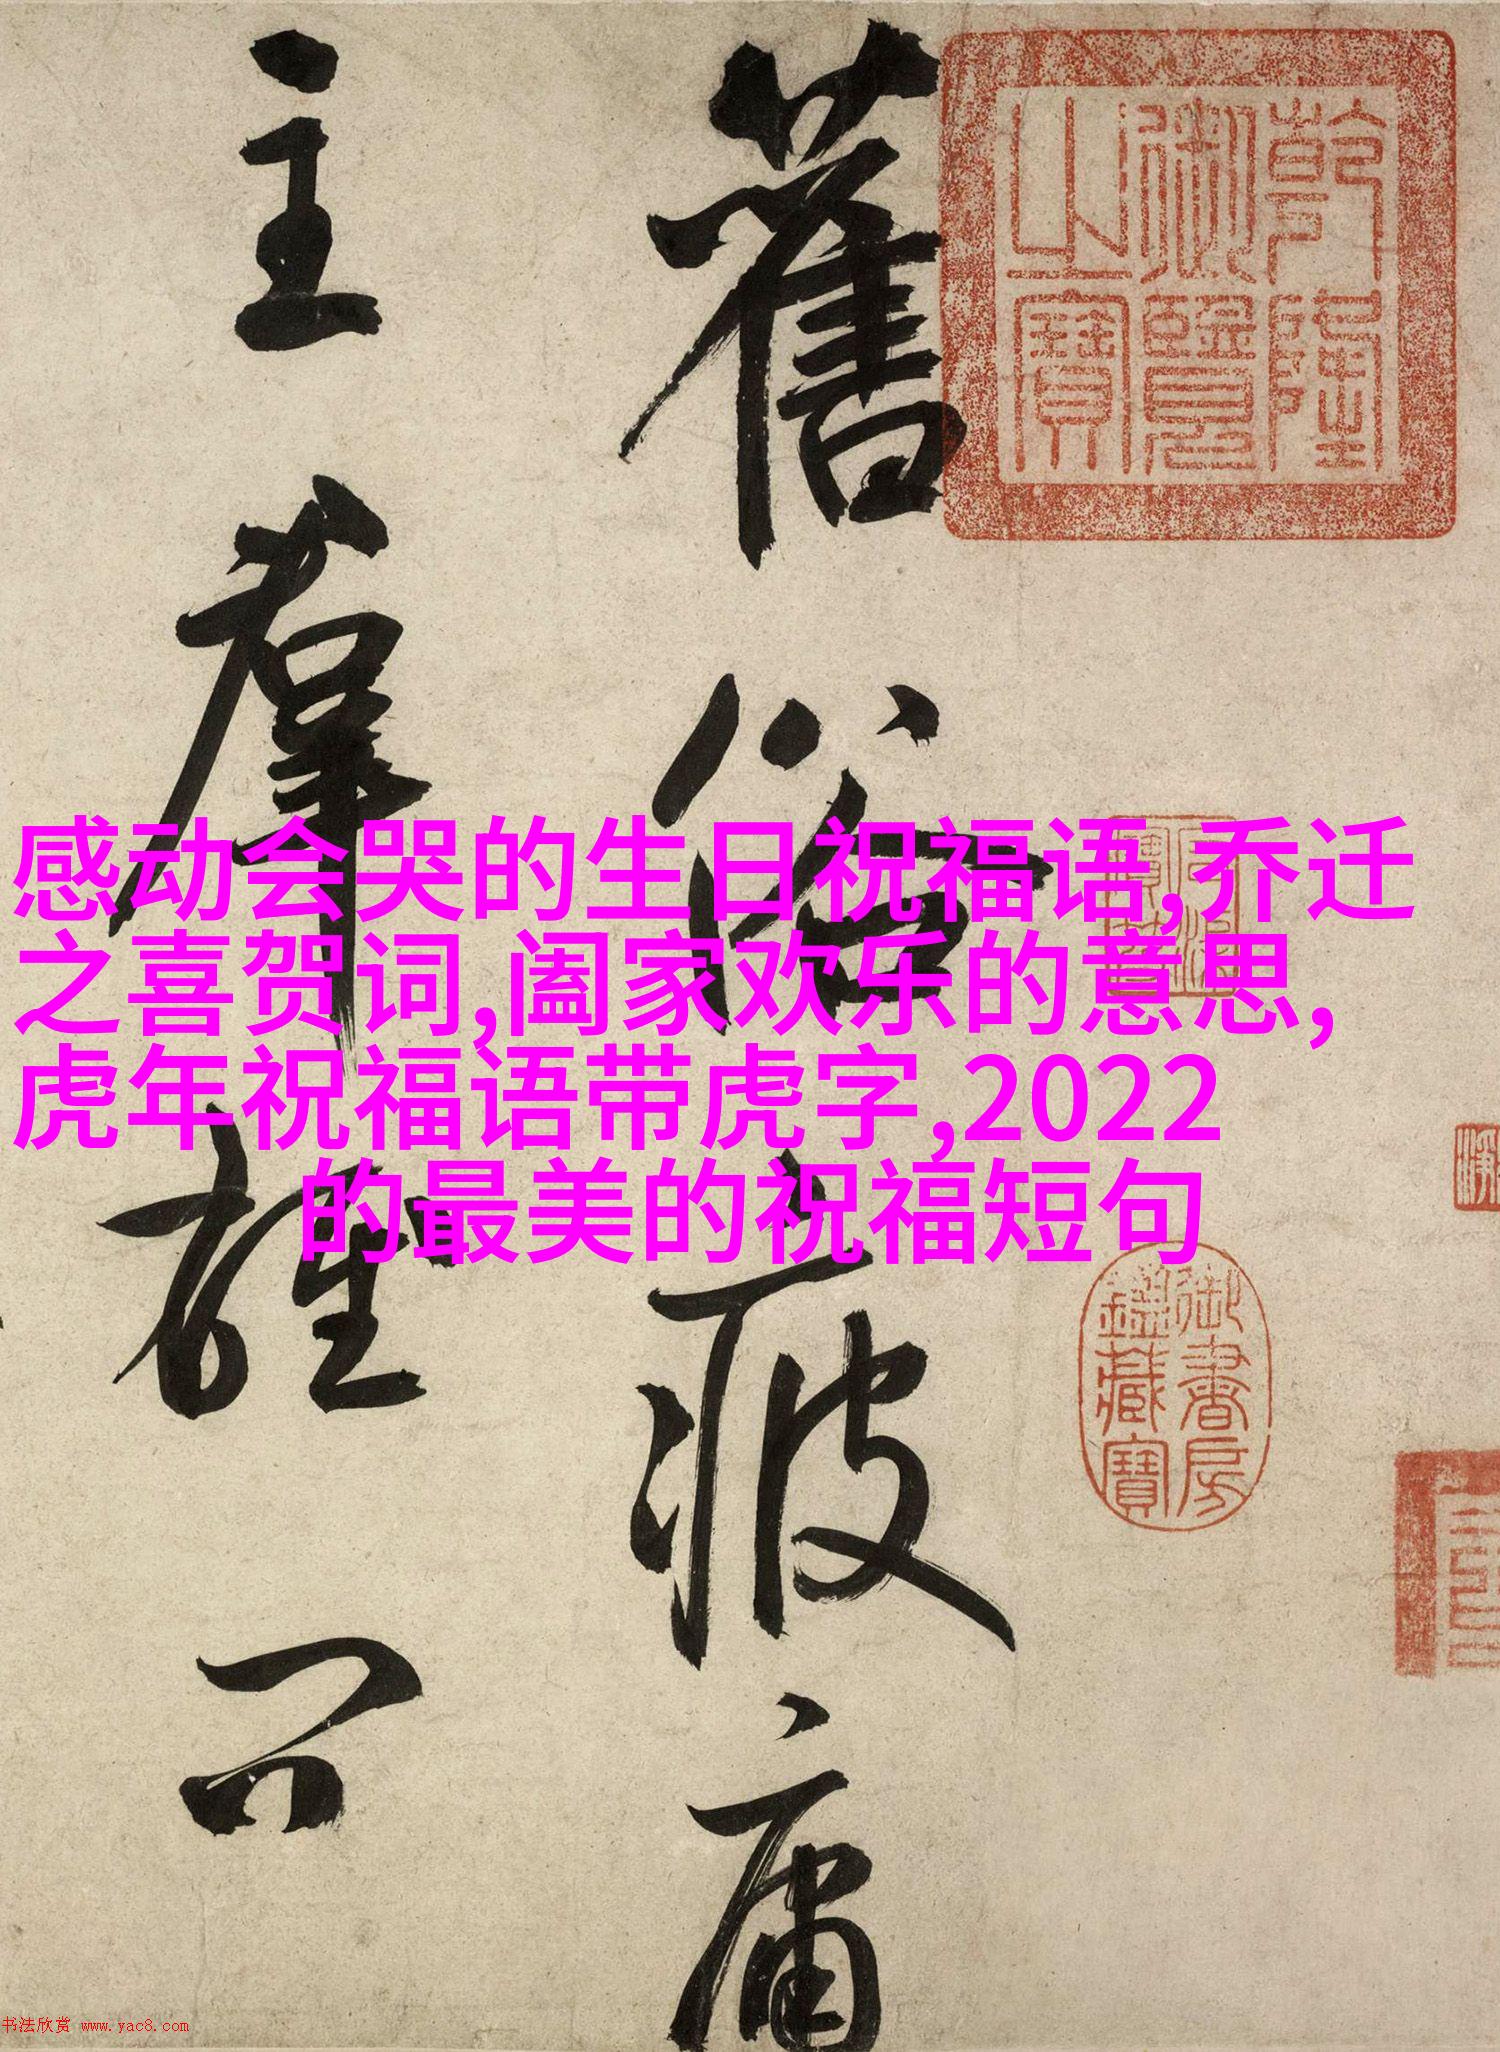 感动会哭的生日祝福语,乔迁
之喜贺词,阖家欢乐的意思,
虎年祝福语带虎字,2022
的最美的祝福短句
乾隆
御覽
之寶
舊俗疲庸
主羣雄只
御書房
鑑藏寶
书法欣赏 www.yac8.com